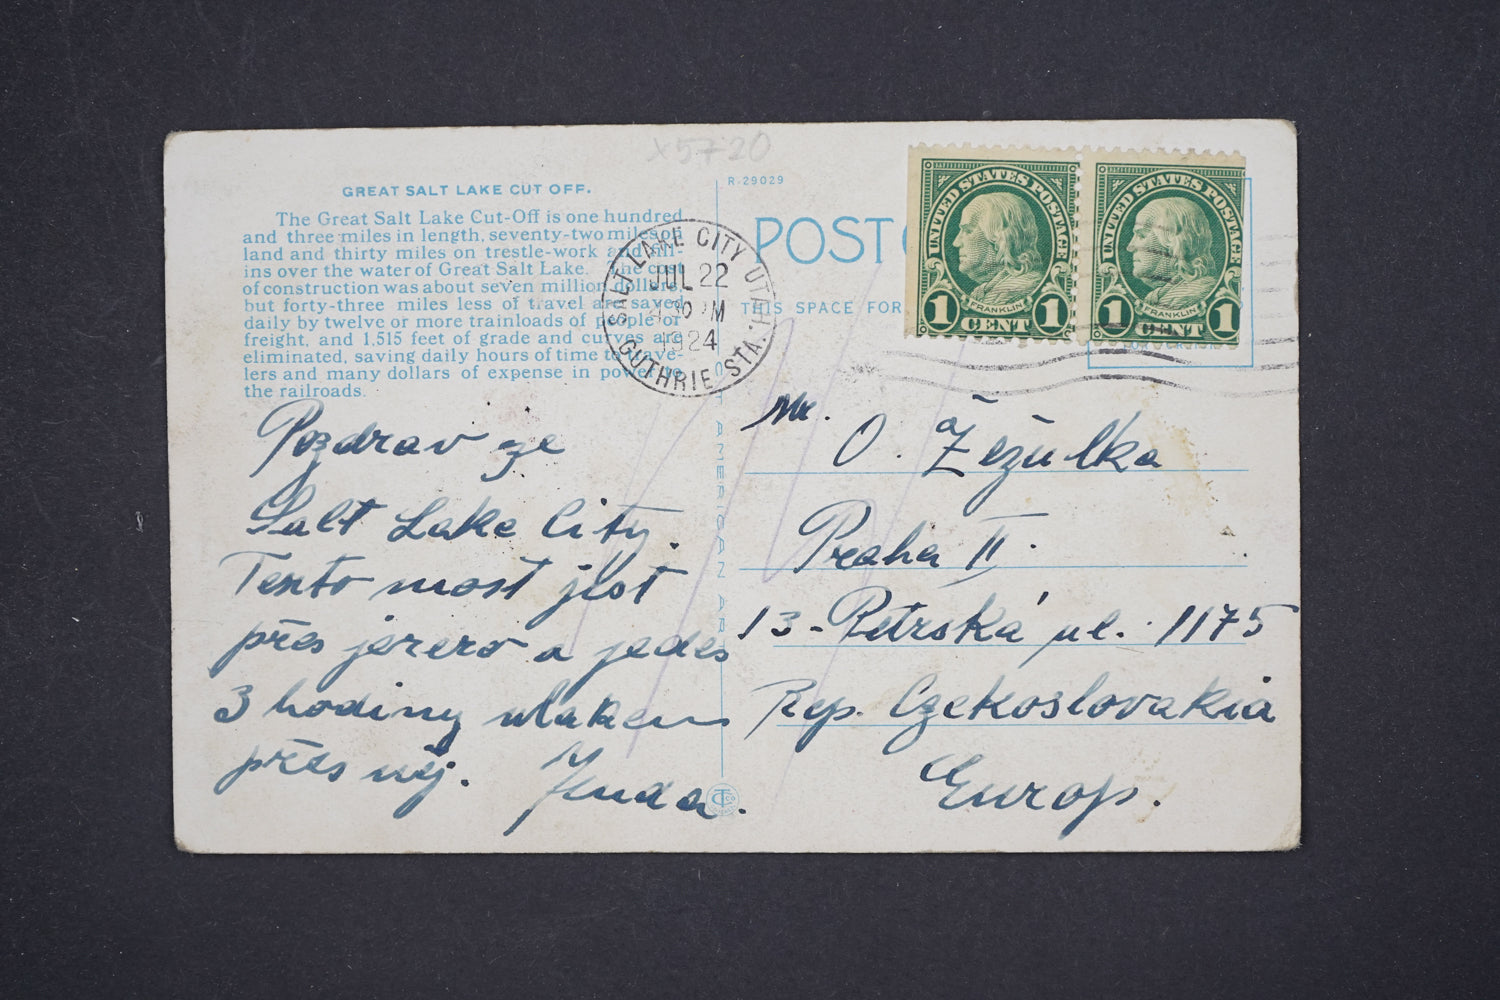 X5720
GREAT SALT LAKE CUT OFF.
The Great Salt Lake Cut-Off is one hundred
and three miles in length, seventy-two miles on
land and thirty miles on trestle-work and fill-
ins over the water of Great Salt Lake. The cost
of construction was about seven million dollars,
but forty-three miles less of travel are saved
daily by twelve or more trainloads of people or
freight, and 1,515 feet of grade and curves are
eliminated, saving daily hours of time to trave-
lers and many dollars of expense in power to
the railroads.
Pozdrav ze
Salt Lake City.
Tento most jest
přes jezero a jedeš
3 hodiny vlakem
přes něj. Jenda.
SALT LAKE CITY UTAH.
JUL 22
30 PM
1924
GUTHRIE STA.
R-29029
POST
THIS SPACE FOR
AMERICAN ART
UNITED STATES POSTAGE
FRANKLIN
1 CENT 1
UNITED STATES POSTAGE
FRANKLIN
1 CENT 1
Mr.
O. Žežulka
Praha II.
13-Petrská ul. 1175
Rep. Czekoslovakia
Europ.